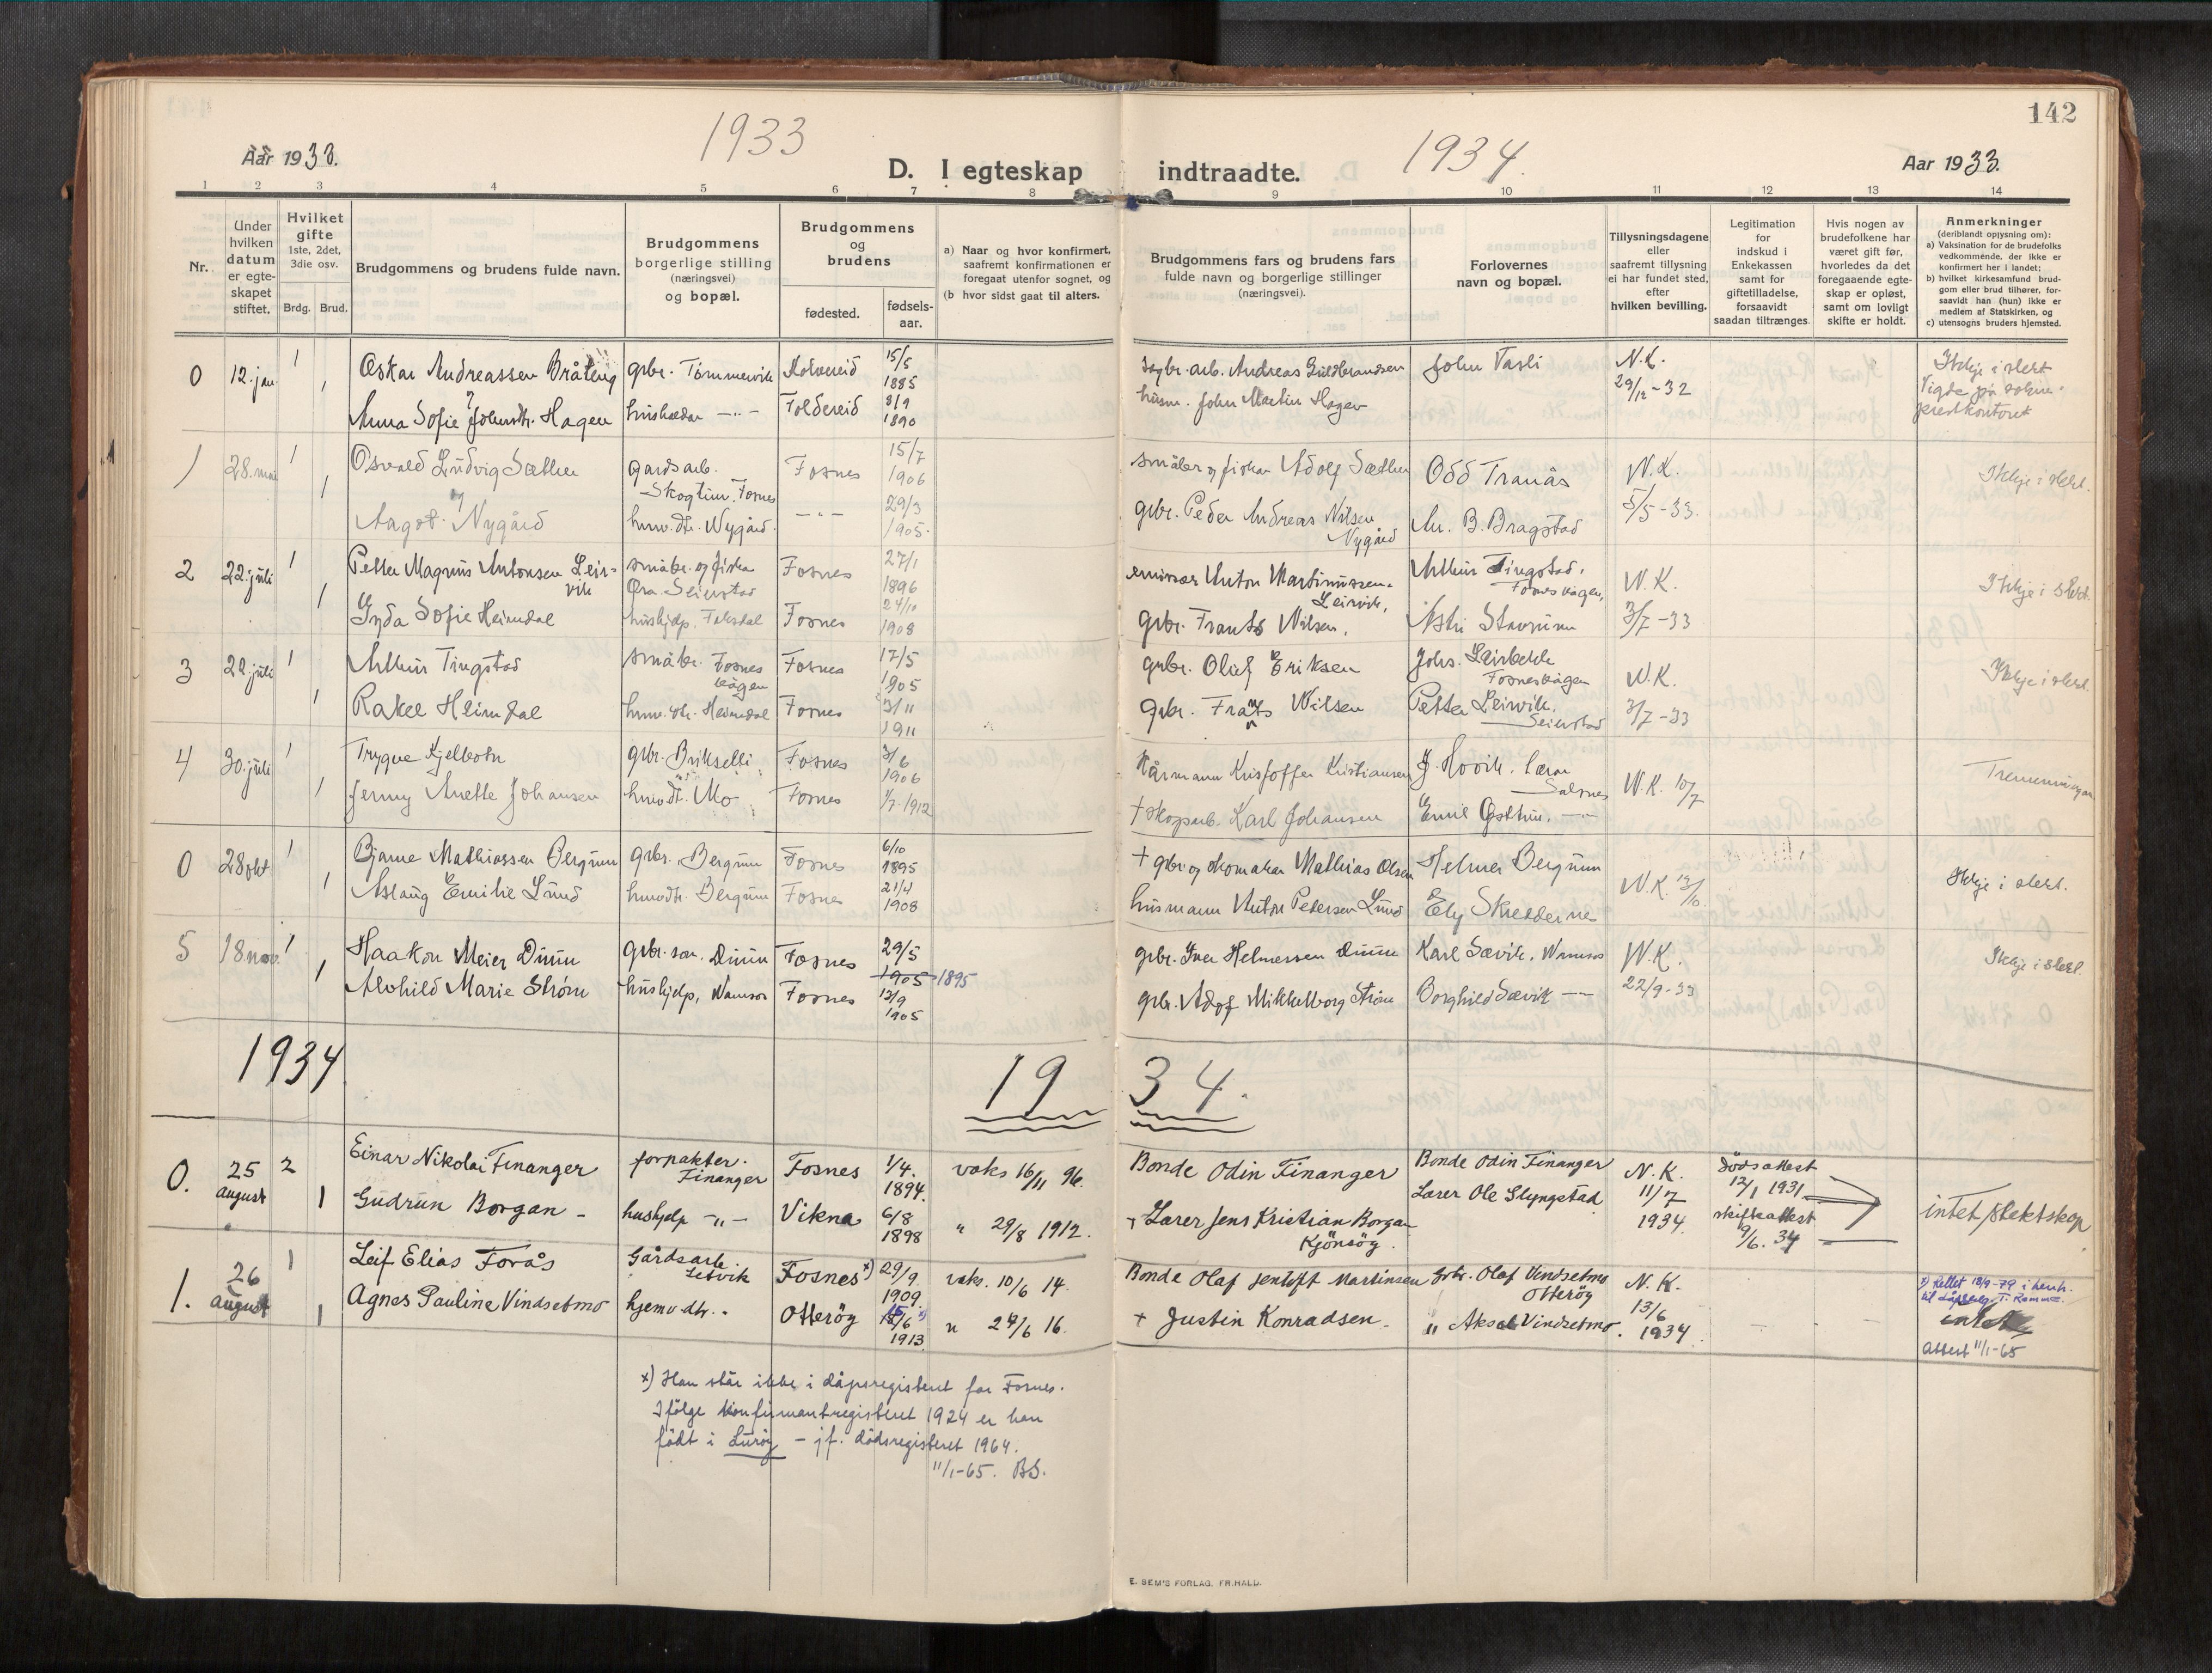 142
1933
1934.
Aar 1933.
D. I egteskap indtraadte.
Aar 1933.
1 2 3 4 5 6 7 8 9 10 11 12 13 14
Nr.
Under hvilken datum er egteskapet stiftet.
Hvilket gifte 1ste, 2det, 3die osv.
Brdg. Brud.
Brudgommens og brudens fulde navn.
Brudgommens borgerlige stilling (næringsvei) og bopæl.
Brudgommens og brudens
fødested.
fødselsaar.
a) Naar og hvor konfirmert, saafremt konfirmationen er foregaat utenfor sognet, og
(b hvor sidst gaat til alters.
Brudgommens fars og brudens fars fulde navn og borgerlige stillinger (næringsvei).
Forlovernes navn og bopæl.
Tillysningsdagene eller saafremt tillysning ei har fundet sted, efter hvilken bevilling.
Legitimation for indskud i Enkekassen samt for giftetilladelse, forsaavidt saadan tiltrænges.
Hvis nogen av brudefolkene har været gift før, hvorledes da det foregaaende egteskap er opløst, samt om lovligt skifte er holdt.
Anmerkninger (deriblandt oplysning om):
a) Vaksination for de brudefolks vedkommende, der ikke er konfirmert her i landet;
b) hvilket kirkesamfund brudgom eller brud tilhører, forsaavidt han (hun) ikke er medlem af Statskirken, og
c) utensogns bruders hjemsted.
0 12. jan 1 Oskar Andreassen Bråteng grbr. Tømmervik Kolvereid 15/5 1885 sagbr. arb. Andreas Guldbrandsen John Vasli N.K. 29/12-32 Ikkje i slekt
1 Anna Sofie Johansdtr. Hagen Foldereid 8/9 1890 husm. John Martin Hagen Vigde på sokne-
prestkontoret
1 28. mai 1 Osvald Ludvig Sæther gardsarb. Fosnes 15/7 1906 småbr og fiskar Adolf Sæther Odd Tranås N.K. 5/5-33. Ikkje i slekt.
Skogtun. Fosnes
1 Aagot Nygård husv. dtr. Nygård. -"- 29/3 1905. grbr. Peder Andreas Nilsen Nygård An. B. Bragstad
2 22. juli 1 Petter Magnus Antonsen Leirvik småbr. og fiskar Fosnes 27/1 1896 emissær Anton Martinussen Leirvik, Arthur Tingstad, Fosnesvågen, N.K. 3/7-33 Ikkje i slekt.
Øra. Seierstad
1 Gyda Sofie Heimdal hushjelp, Faksdal Fosnes 24/10 1908 grbr. Frants Nilsen, Astri Stavrum
3 22. juli 1 Arthur Tingstad småbr. Fosnesvågen Fosnes 17/5 1905 grbr. Oluf Eriksen Johs. Leirbekk Fosnesvågen N.K. 3/7-33 Ikkje i slekt.
1 Rakel Heimdal husv. dtr. Heimdal Fosnes 3/11 1911 grbr. Frants Nilsen Petter Leirvik. Seierstad
4 30. juli 1 Trygve Kjelbotn grbr. Brikselli Fosnes 3/6 1906 Kårmann Kristoffer Kristiansen J. Hovik. lærar Salsnes N.K. 10/7 Tremenningar
1 Jenny Anette Johansen husv dt. Mo Fosnes 1/7. 1912 + skogsarb. Karl Johansen Emil Østhus. -"-
0 28 okt 1 Bjarne Mathiassen Bergum grbr. Bergum Fosnes 6/10 1895 + grbr. og skomakar Mathias Olsen Helmer Bergum N.K. 13/10. Ikkje i slekt.
1 Aslaug Emilie Lund husv dtr. Bergum Fosnes 21/4 1908 husmann Anton Pedersen Lund Ely Skredderne
5 18 nov. 1 Haakon Meier Duun grbr. son. Duun Fosnes 29/5 1905 1895 grbr. Iver Helmersen Duun Karl Sævik. Namsos N.K. 22/9-33 Ikkje i slekt.
1 Alvhild Marie Strøm hushjelp, Namsos Fosnes 13/9 1905 grbr. Adolf Mikkelborg Strøm Borghild Sævik -"-
1934
19 34.
0. 25 august 2 Einar Nikolai Finanger forpakter. Finanger Fosnes 1/4. 1894. vaks 16/11 96. Bonde Odin Finanger Bonde Odin Finanger N.K. 11/7 1934. Dödsattest 12/1 1931 intet slektskap
1 Gudrun Borgan - hushjelp -"- Vikna 6/8 1898 " 29/8 1912. + Lærer Jens Kristian Borgan Kjönsöy. Lærer Ole Slyngstad skifteattest 9/6. 34
1. 26 august 1 Leif Elias Forås Gårdsarb. Fosnes x) 29/9. 1909. vaks. 10/6 14. Bonde Olaf Jentoft Martinsen Grbr. Olaf Vindsetmo Otteröy N.K. 13/6 1934. x) Rettet 18/9-79 i henh. til dåpsbok
1 Agnes Pauline Vindsetmo hjemv dtr. Otteröy 15/6 x) 1913. " 24/6 16. + Justin Konradsen. " Aksel Vindsetmo. - - - intet
attest 11/1-65
x) Han står ikke i dåpsregisteret for Fosnes.
Ifölge konfirmantregisteret 1924 er han
födt i Luröy - jf. dödsregisteret 1964.
11/1-65. BS.
E. SEM'S FORLAG. FR.HALD.